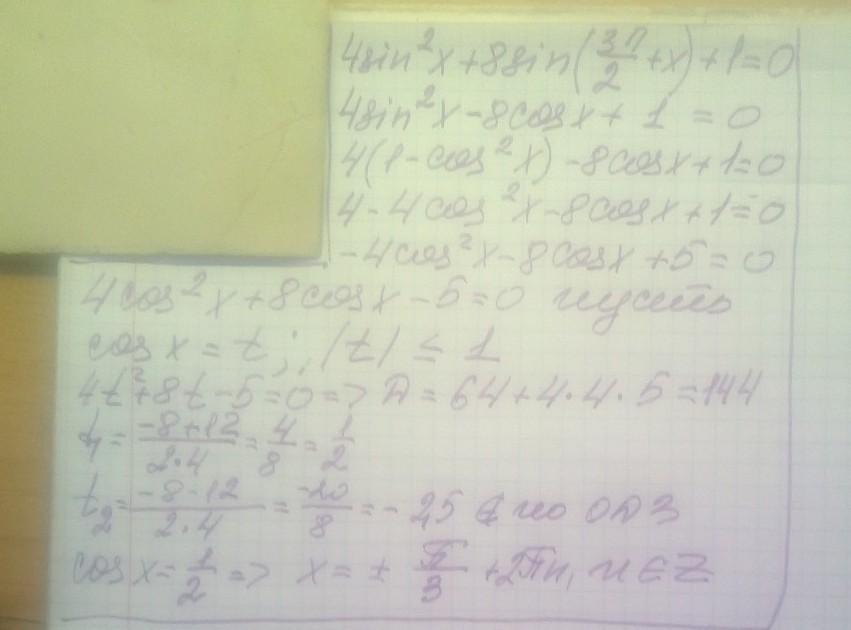 4sin²x+8sin(3π/2+x)+1=0
4sin²x-8cosx+1=0
4(1-cos²x)-8cosx+1=0
4-4cos²x-8cosx+1=0
-4cos²x-8cosx+5=0
4cos²x+8cosx-5=0 пусть
cos x=t; |t|≤1
4t²+8t-5=0=>Д=64+4·4·5=144
t₁=(-8+12)/(2·4)=4/8=1/2
t₂=(-8-12)/(2·4)=-20/8=-2,5 ∉ по ОДЗ
cosx=1/2=> x=±π/3+2πn, n∈Z